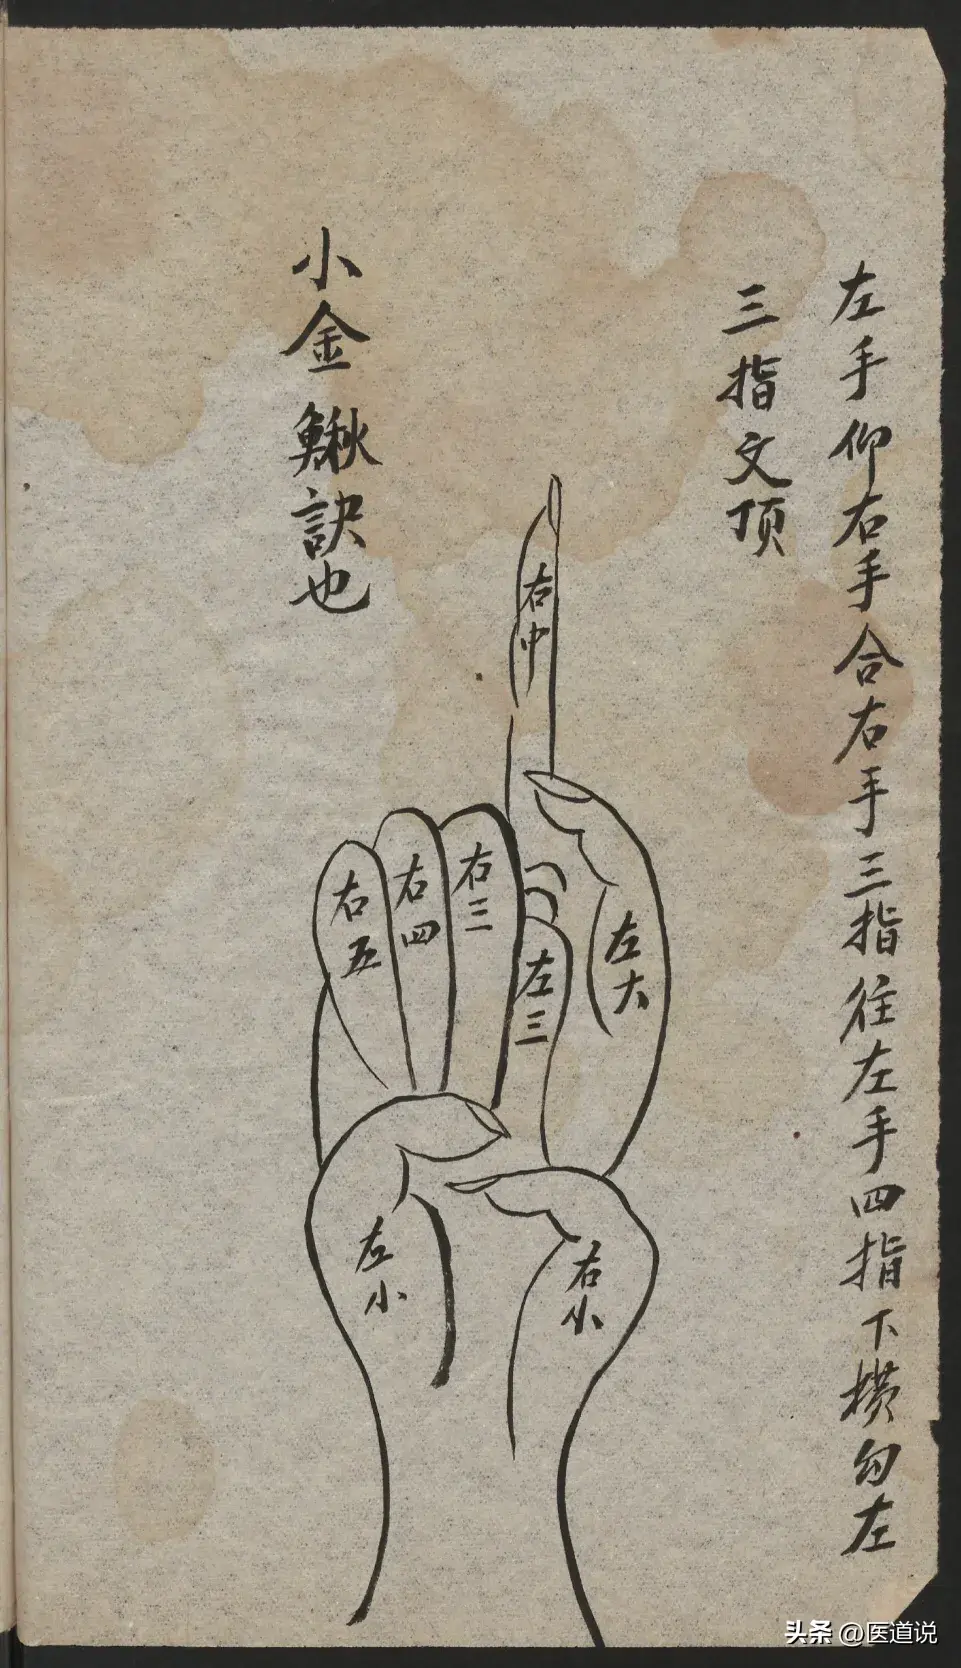 左手仰右手合右手三指往左手四指下横勾左
三指文顶
小金鳅訣也
右中
右三
右四
右五
左三
左大
左小
右小
头条 @医道说